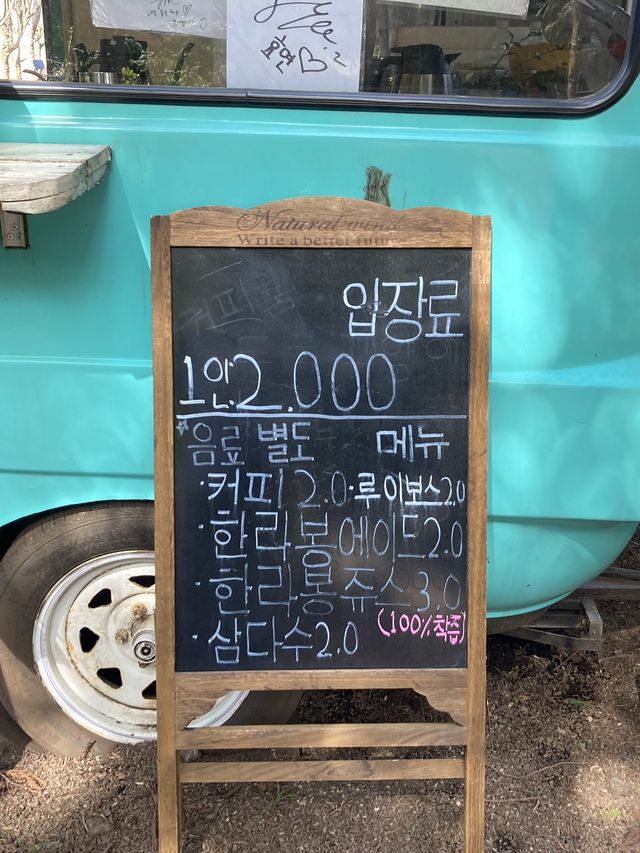 호연♡
Natural wind
Write a better futu
커피
입장료
1인.2.000
*음료 별도 메뉴
·커피 2.0 ·루이보스2.0
·한라봉에이드2.0
·한라봉쥬스3.0
(100%착즙)
·삼다수2.0